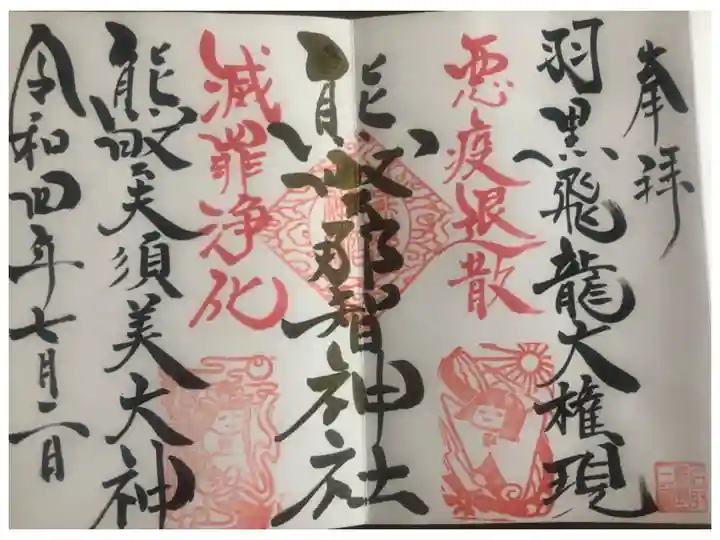 奉拝
羽黒飛龍大権現
悪疫退散
熊野那智神社
滅罪浄化
熊野夫須美大神
令和四年七月二日